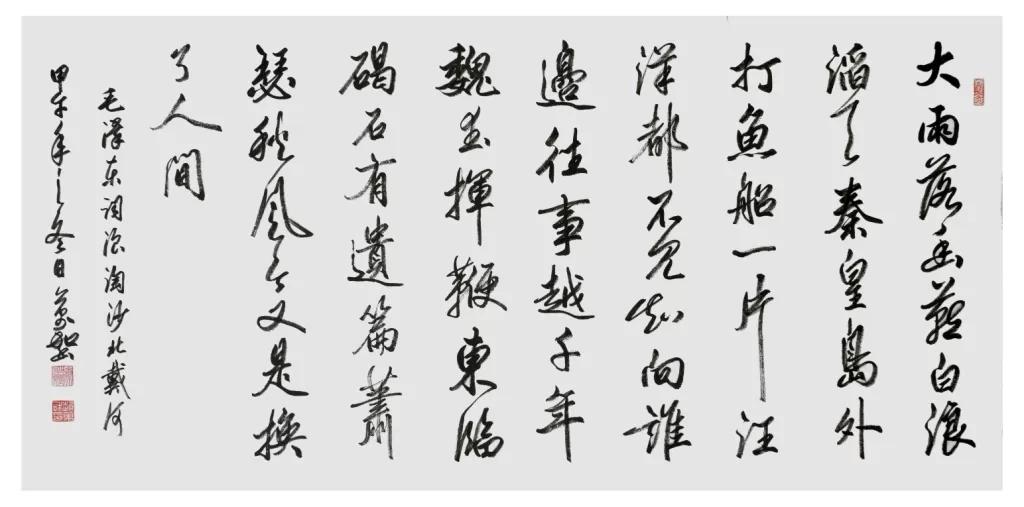 大雨落幽燕白浪
滔天秦皇島外
打魚船一片汪
洋都不見知向誰
邊往事越千年
魏武揮鞭東臨
碣石有遺篇蕭
瑟秋風今又是換
了人間
毛澤东詞浪淘沙北戴河
甲午年之冬日